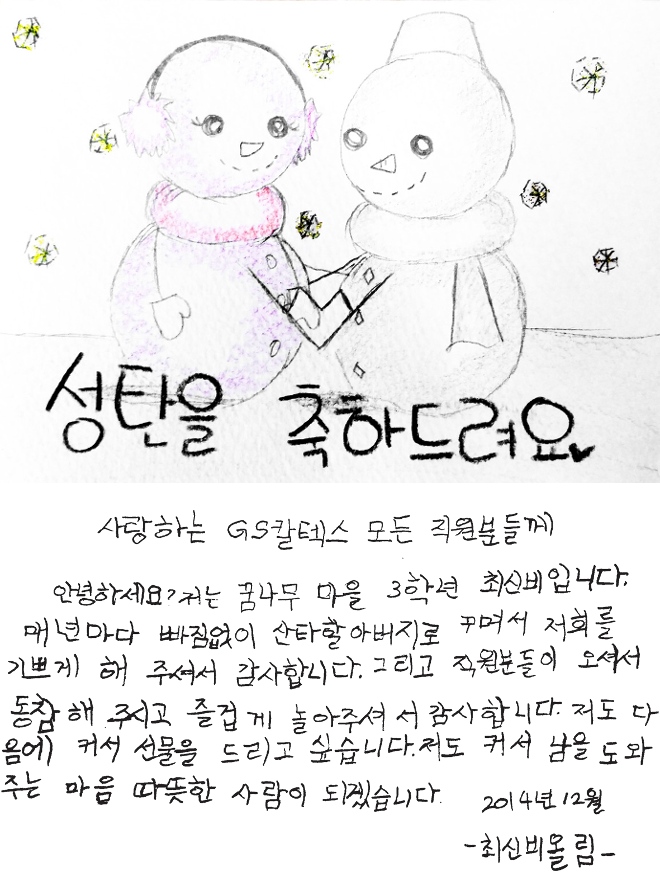 성탄을 축하드려요
사랑하는 GS칼텍스 모든 직원분들께
안녕하세요? 저는 꿈나무 마을 3학년 최신비입니다.
매년마다 빠짐없이 산타할아버지로 꾸며서 저희를
기쁘게 해 주셔서 감사합니다. 그리고 직원분들이 오셔서
동참해 주시고 즐겁게 놀아주셔서 감사합니다. 저도 다
음에 커서 선물을 드리고 싶습니다. 저도 커서 남을 도와
주는 마음 따뜻한 사람이 되겠습니다.
2014년 12월
-최신비올림-